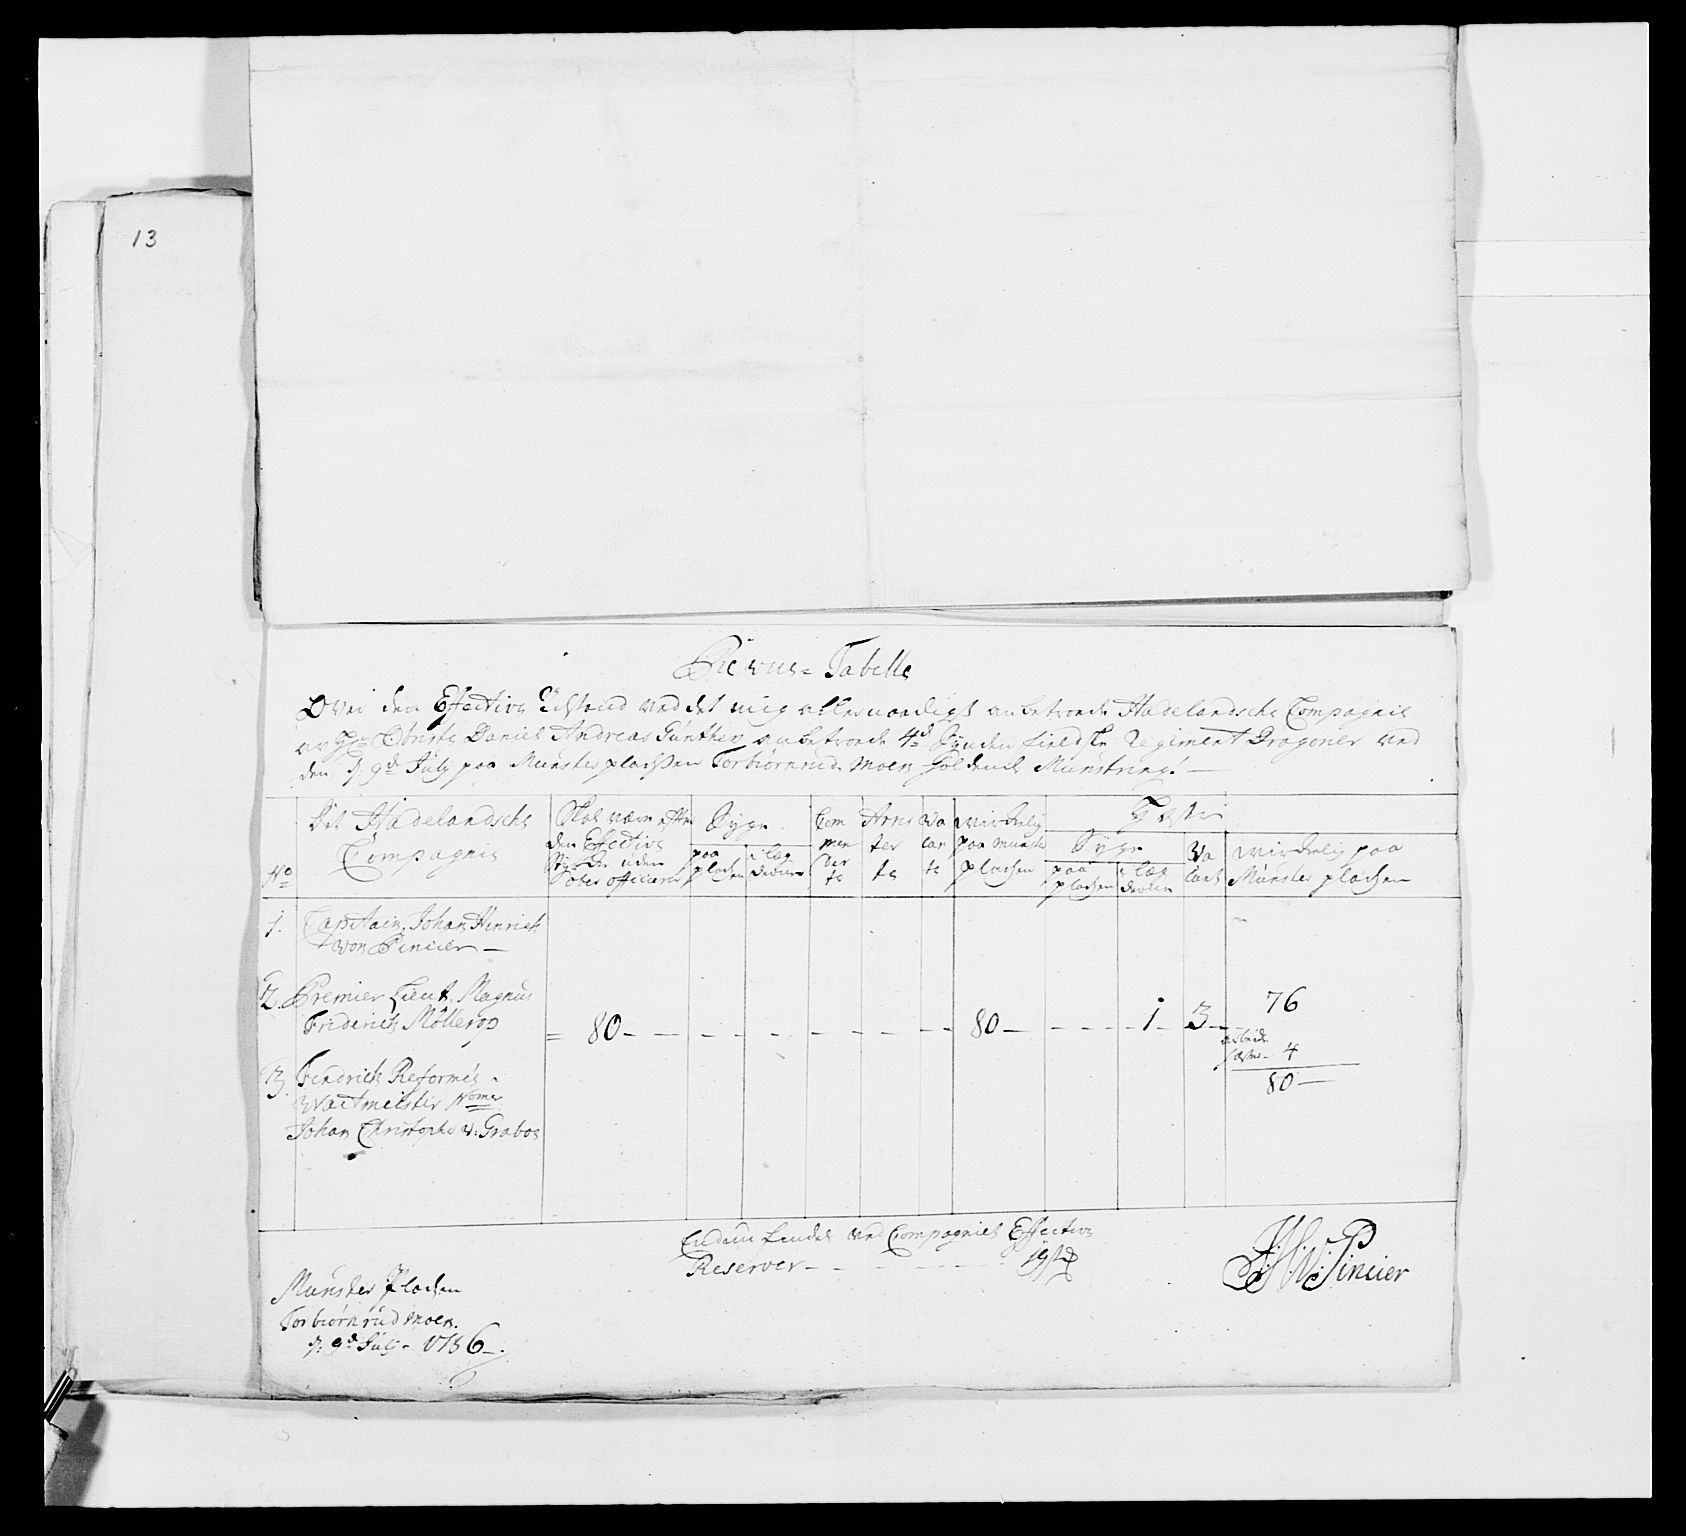 13
Revue- Tabelle
Over den Effective Tilstand ved det mig allernaadigst anbetroede Hadelandsche Compagnie
av Hr Obriste Daniel Andreas Günther anbetroede 4de Synden fieldske Regiment Dragoner ved
den d: 9de July paa Mønster pladsen Torbiørnrud Moen holdende Mønstring! —
No
Det Hadelandsche
Compagnie
Skal være efter
den Effective
Styrcke uden
ober officierer
Syge
paa
pladsen
i læg
derne
Com
men
der
te
Arres
ter
te
Va
can
te
wirckelig
paa Mønster
pladsen
Heste
Syge
paa
pladsen
i læg
derne
Va
cant
wirckelig paa
Mønster pladsen
1. Capitain Johan Hinrich
von Pincier —
2. Premier Lieut. Magnus
Friderich Møllerop
3. Fendrich Reformé
Wactmeister Nomer
Johan Christopher v: Grabow
= 80 — — — — — — — — 80 — — — — 1 — 3 —
76
arbeids
heste — 4
80 —
Endnu findes ved Compagniet Effective
Reserver — — — — — — 19
JHV Pincier
Mønster Pladsen
Torbiørnrud Moen.
d: 9de July — 1756.